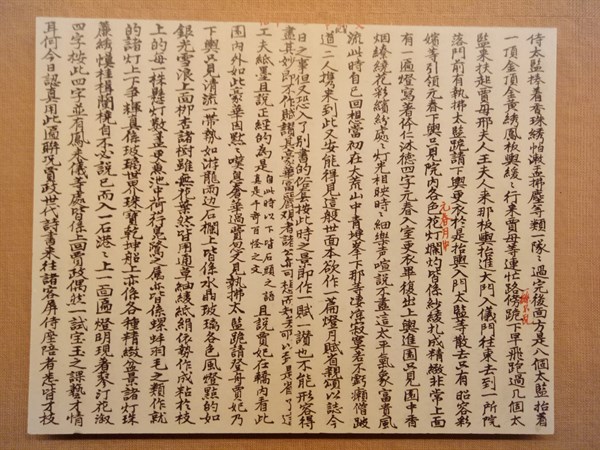 侍太監捧着香珠綉帕漱盂拂塵等類一隊〻過完後面方是八個太監抬着
一頂金頂金黃綉鳳板輿緩〻行來賈母等連忙路傍跪下早飛跑過幾個太
監來扶起賈母邢夫人王夫人來那板輿抬進大門入儀門往東去到一所院
落門前有執拂太監跪請下輿更衣於是抬輿入門太監等散去只有昭容彩
嬪等引領元春下輿只見院內各色花灯爛灼皆係紗綾扎成精緻非常上面
元春目中
有一匾燈寫着体仁沐德四字元春入室更衣畢復出上輿進園只見園中香
烟繚繞花彩繽紛處〻灯光相映時〻細樂声喧說不盡這太平氣象富貴風
流此時自己回想當初在大荒山中青埂峯下那等凄凉寂寞若不虧癩僧跛
道二人攜來到此又安能得見這般世面本欲作一篇燈月賦省親頌以誌今
日之事但又恐入了別書的俗套按此時之景即作一賦一讚也不能形容得
盡其妙即不作賦讚其豪華富麗觀者諸公亦可想而知矣所以到是省了這
工夫紙墨且說正經的為是 自此時以下皆石頭之語真是千奇百怪之文 且說賈妃在轎內看此
園內外如此豪華因默〻嘆息奢華過費忽又見執拂太監跪請登舟賈妃乃
下輿只見清流一帶勢如游龍兩边石欄上皆係水晶玻璃各色風燈點的如
銀光雪浪上面柳杏諸樹雖無花葉然皆用通草紬綾紙絹依勢作成粘於枝
上的每一株懸灯數盞更兼池中荷荇凫鷺之屬亦皆係螺蚌羽毛之類作就
的諸灯上下爭輝真係玻璃世界珠寶乾坤船上亦係各種精緻盆景諸灯珠
簾綉幙桂楫蘭橈自不必說已而入一石港〻上一面匾燈明現着蓼汀花溆
四字按此四字並有鳳來儀等處皆係上回賈政偶然一試宝玉之課藝才情
耳何今日認真用此匾聯況賈政世代詩書來往諸客屏侍座陪者悉皆才技